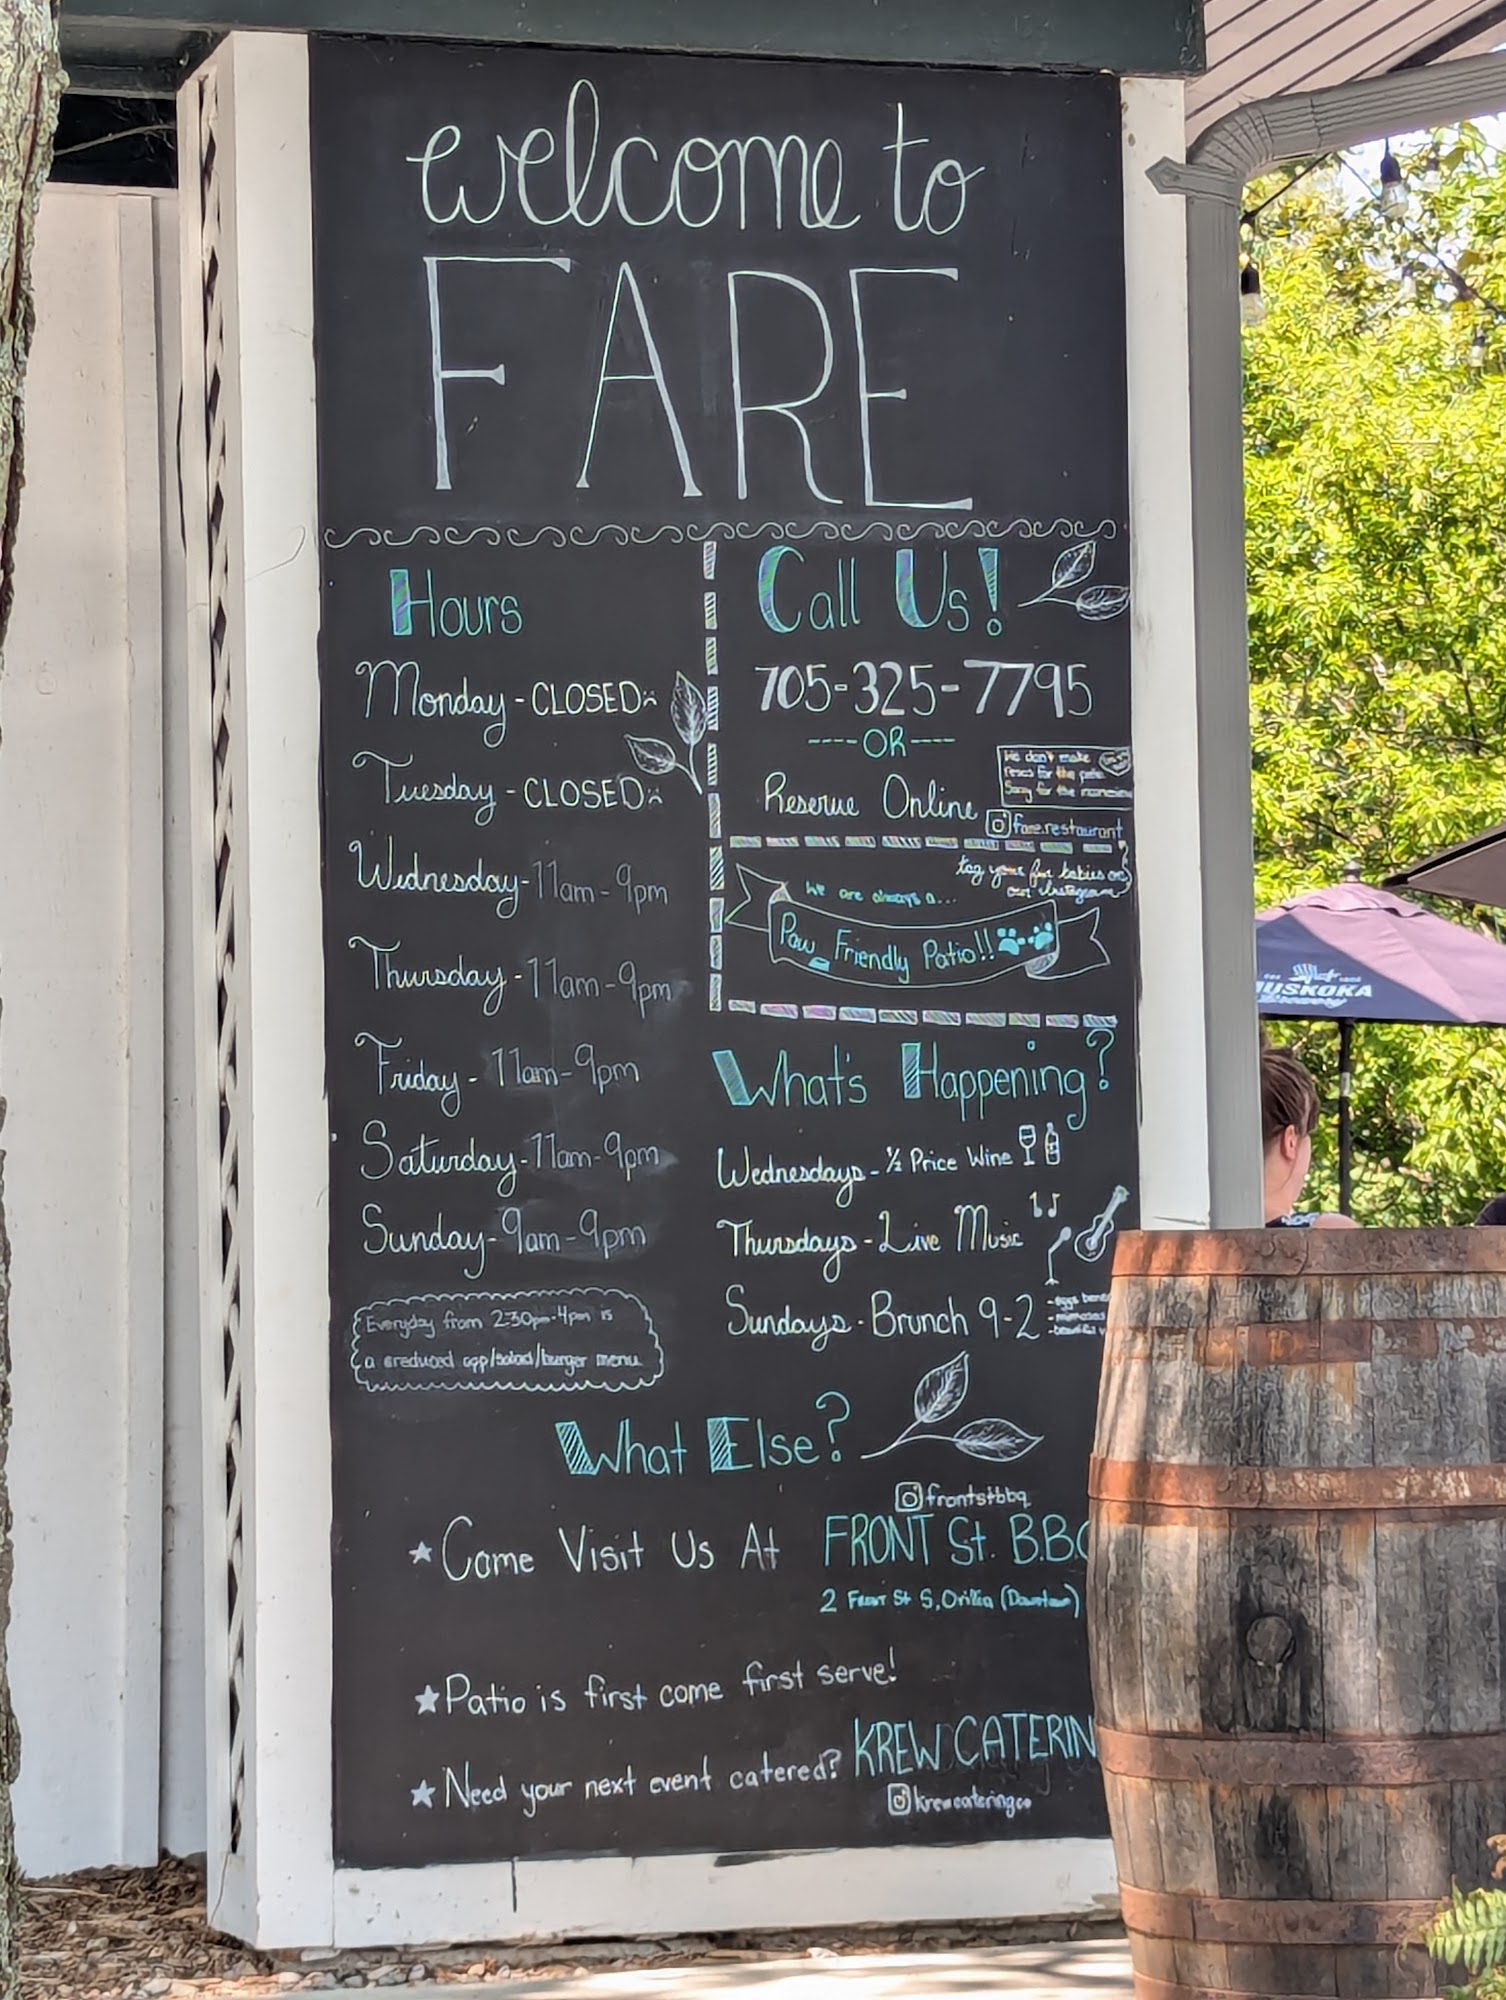 welcome to
FARE
Hours
Monday - CLOSED :(
Tuesday - CLOSED :(
Wednesday - 11am - 9pm
Thursday - 11am - 9pm
Friday - 11am - 9pm
Saturday - 11am - 9pm
Sunday - 9am - 9pm
Everyday from 2:30pm-4pm is
a reduced app/salad/burger menu
Call Us!
705-325-7795
----OR----
Reserve Online
We don't make
resos for the patio
Sorry for the
fare.restaurant
tag your fur babies on
our instagram
We are always a...
Paw Friendly Patio!!
What's Happening?
Wednesdays - ½ Price Wine
Thursdays - Live Music
Sundays - Brunch 9-2
-eggs bene
-mimosas
What Else?
frontstbbq
★ Come Visit Us At FRONT St. B.B.Q
2 Front St S, Orillia (Downtown)
★ Patio is first come first serve!
★ Need your next event catered? KREW CATERIN
krewcateringco
MUSKOKA
Brewery